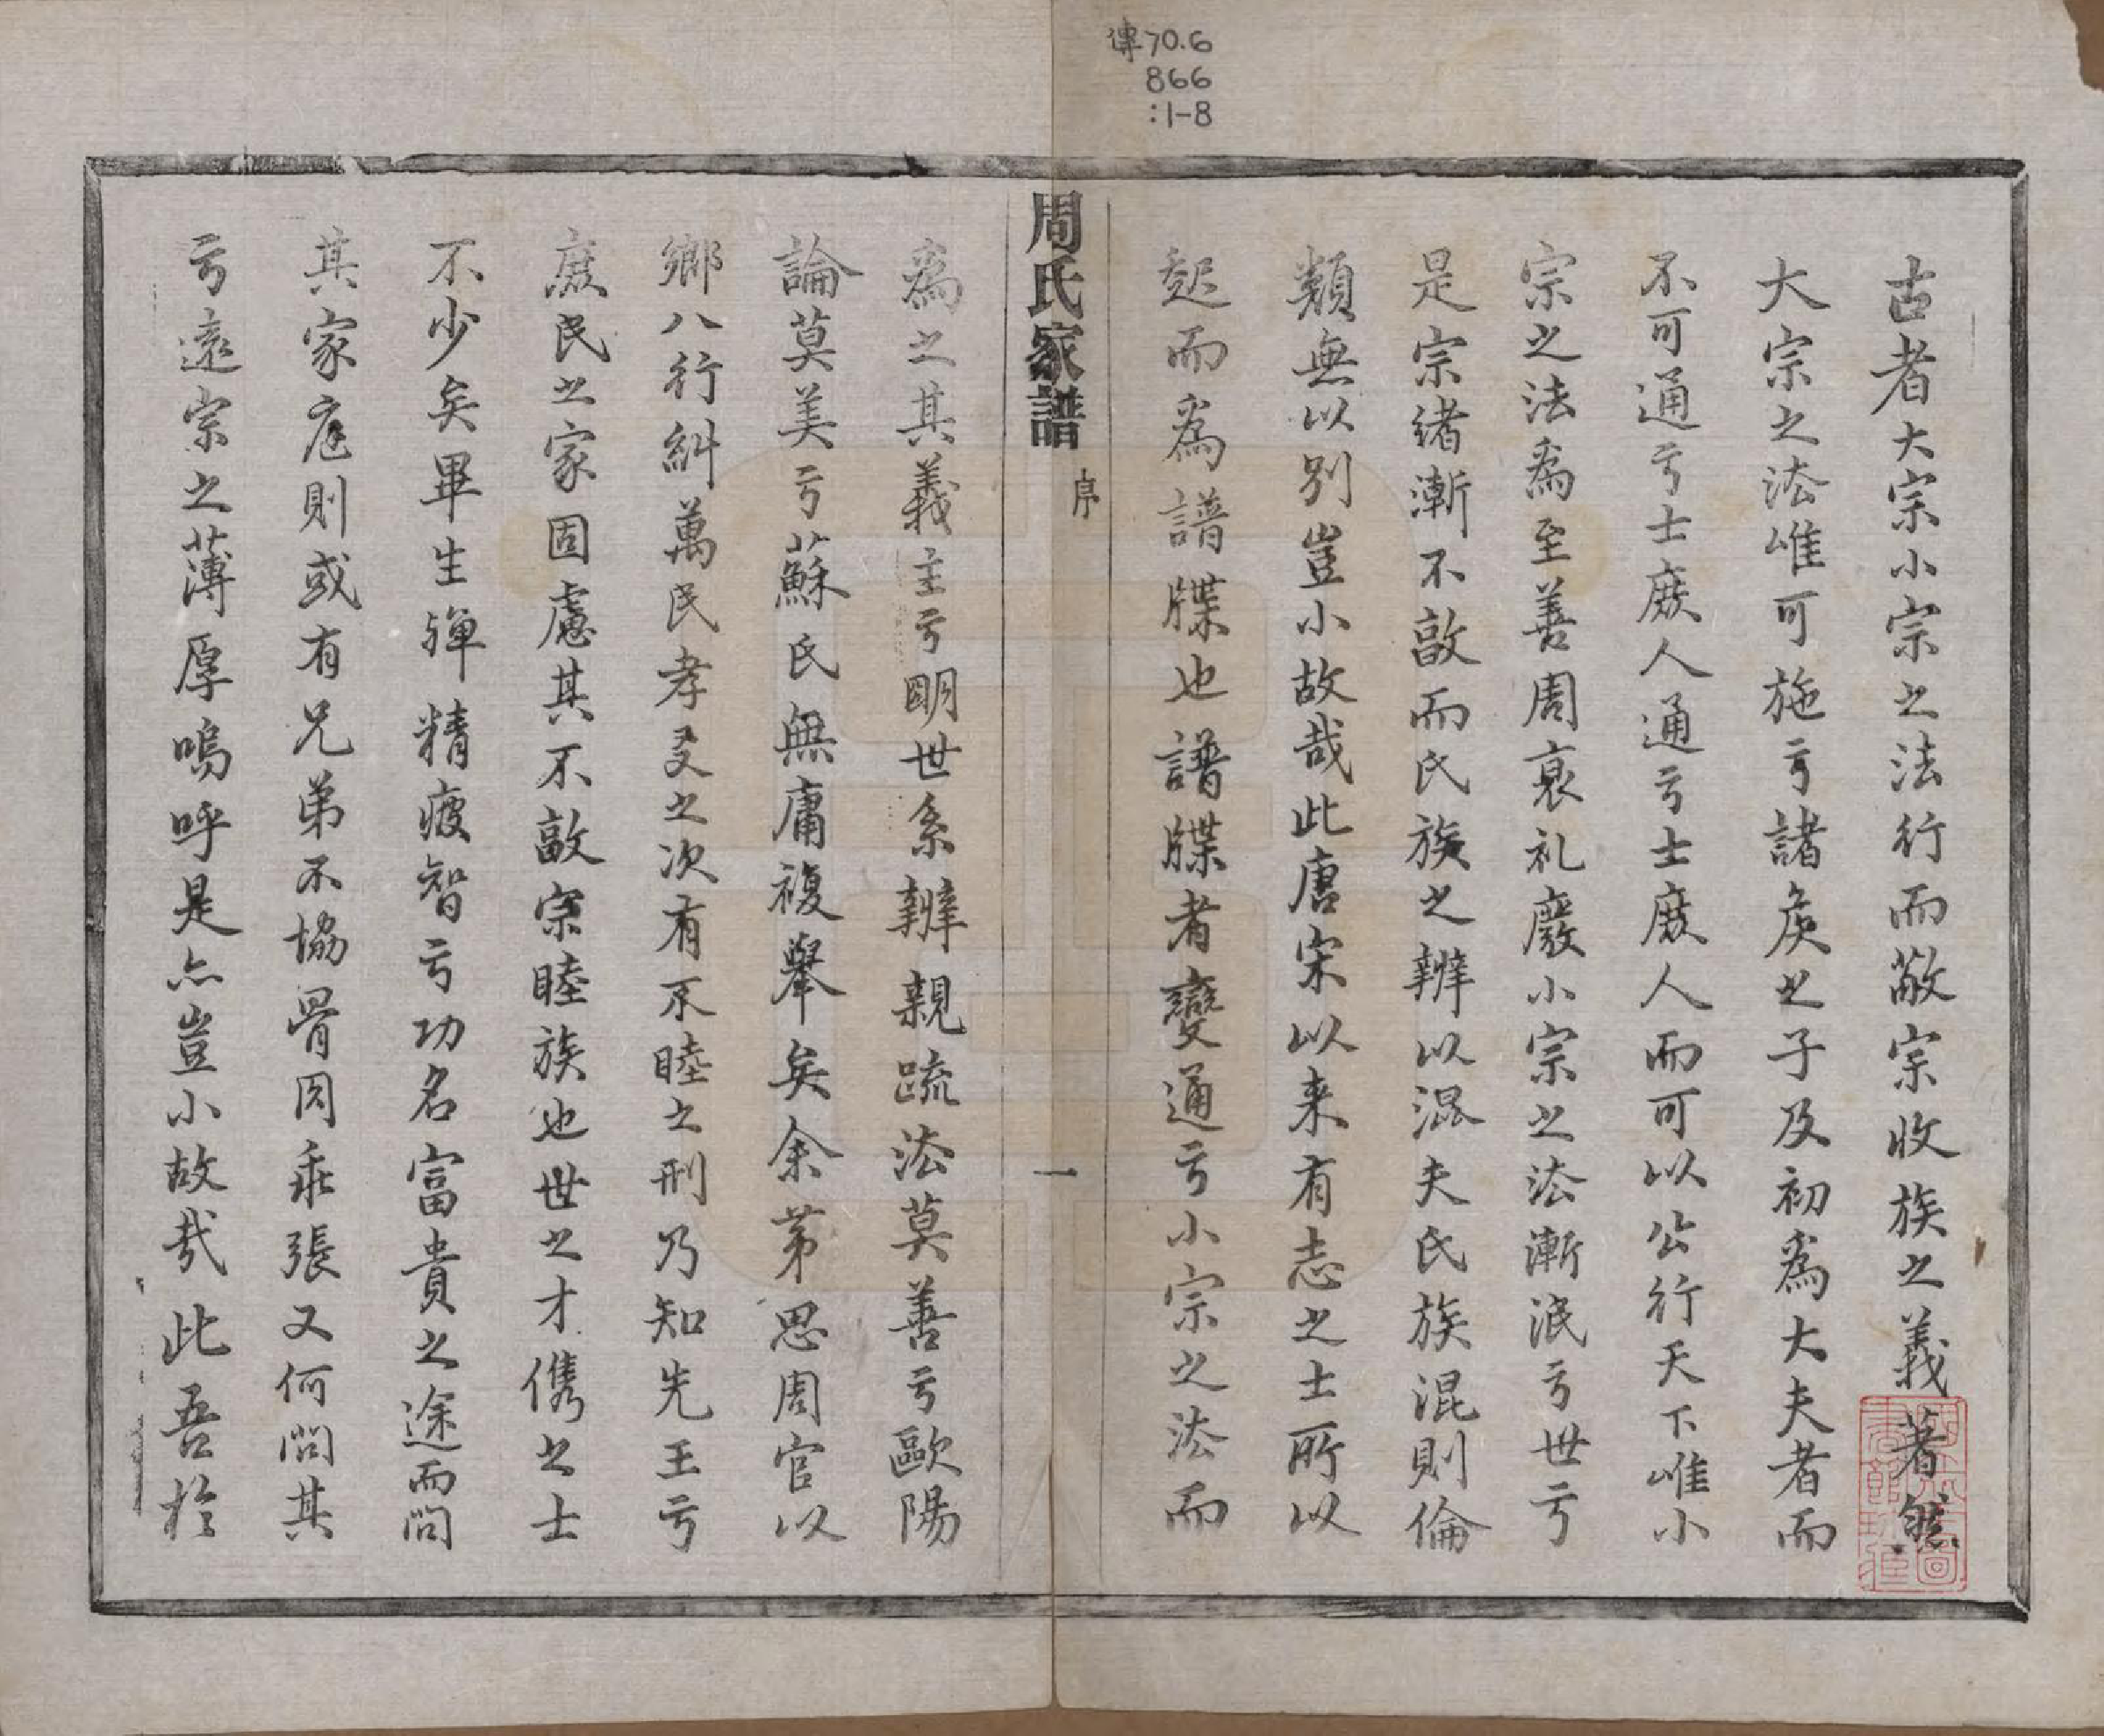 傳70.6
866
:1-8
古者大宗小宗之法行而敬宗收族之義著然
大宗之法唯可施亏諸矦之子及初為大夫者而
不可通亏士庶人通亏士庶人而可以公行天下唯小
宗之法為至善周衰礼廢小宗之法漸泯亏世亏
是宗緒漸不敬而氏族之辨以混夫氏族混則倫
類無以別豈小故哉此唐宋以来有志之士所以
起而為譜牒也譜牒者變通亏小宗之法而
周氏家譜
序
一
為之其義主亏明世系辨親疏法莫善亏歐陽
論莫美亏蘇氏無庸複舉矣余第思周官以
鄉八行糾萬民孝友之次有不睦之刑乃知先王亏
庶民之家固慮其不敬宗睦族也世之才儁之士
不少矣畢生殫精疲智亏功名富貴之途而問
其家庭則或有兄弟不協骨肉乖張又何問其
亏遠宗之薄厚嗚呼是亦豈小故哉此吾於